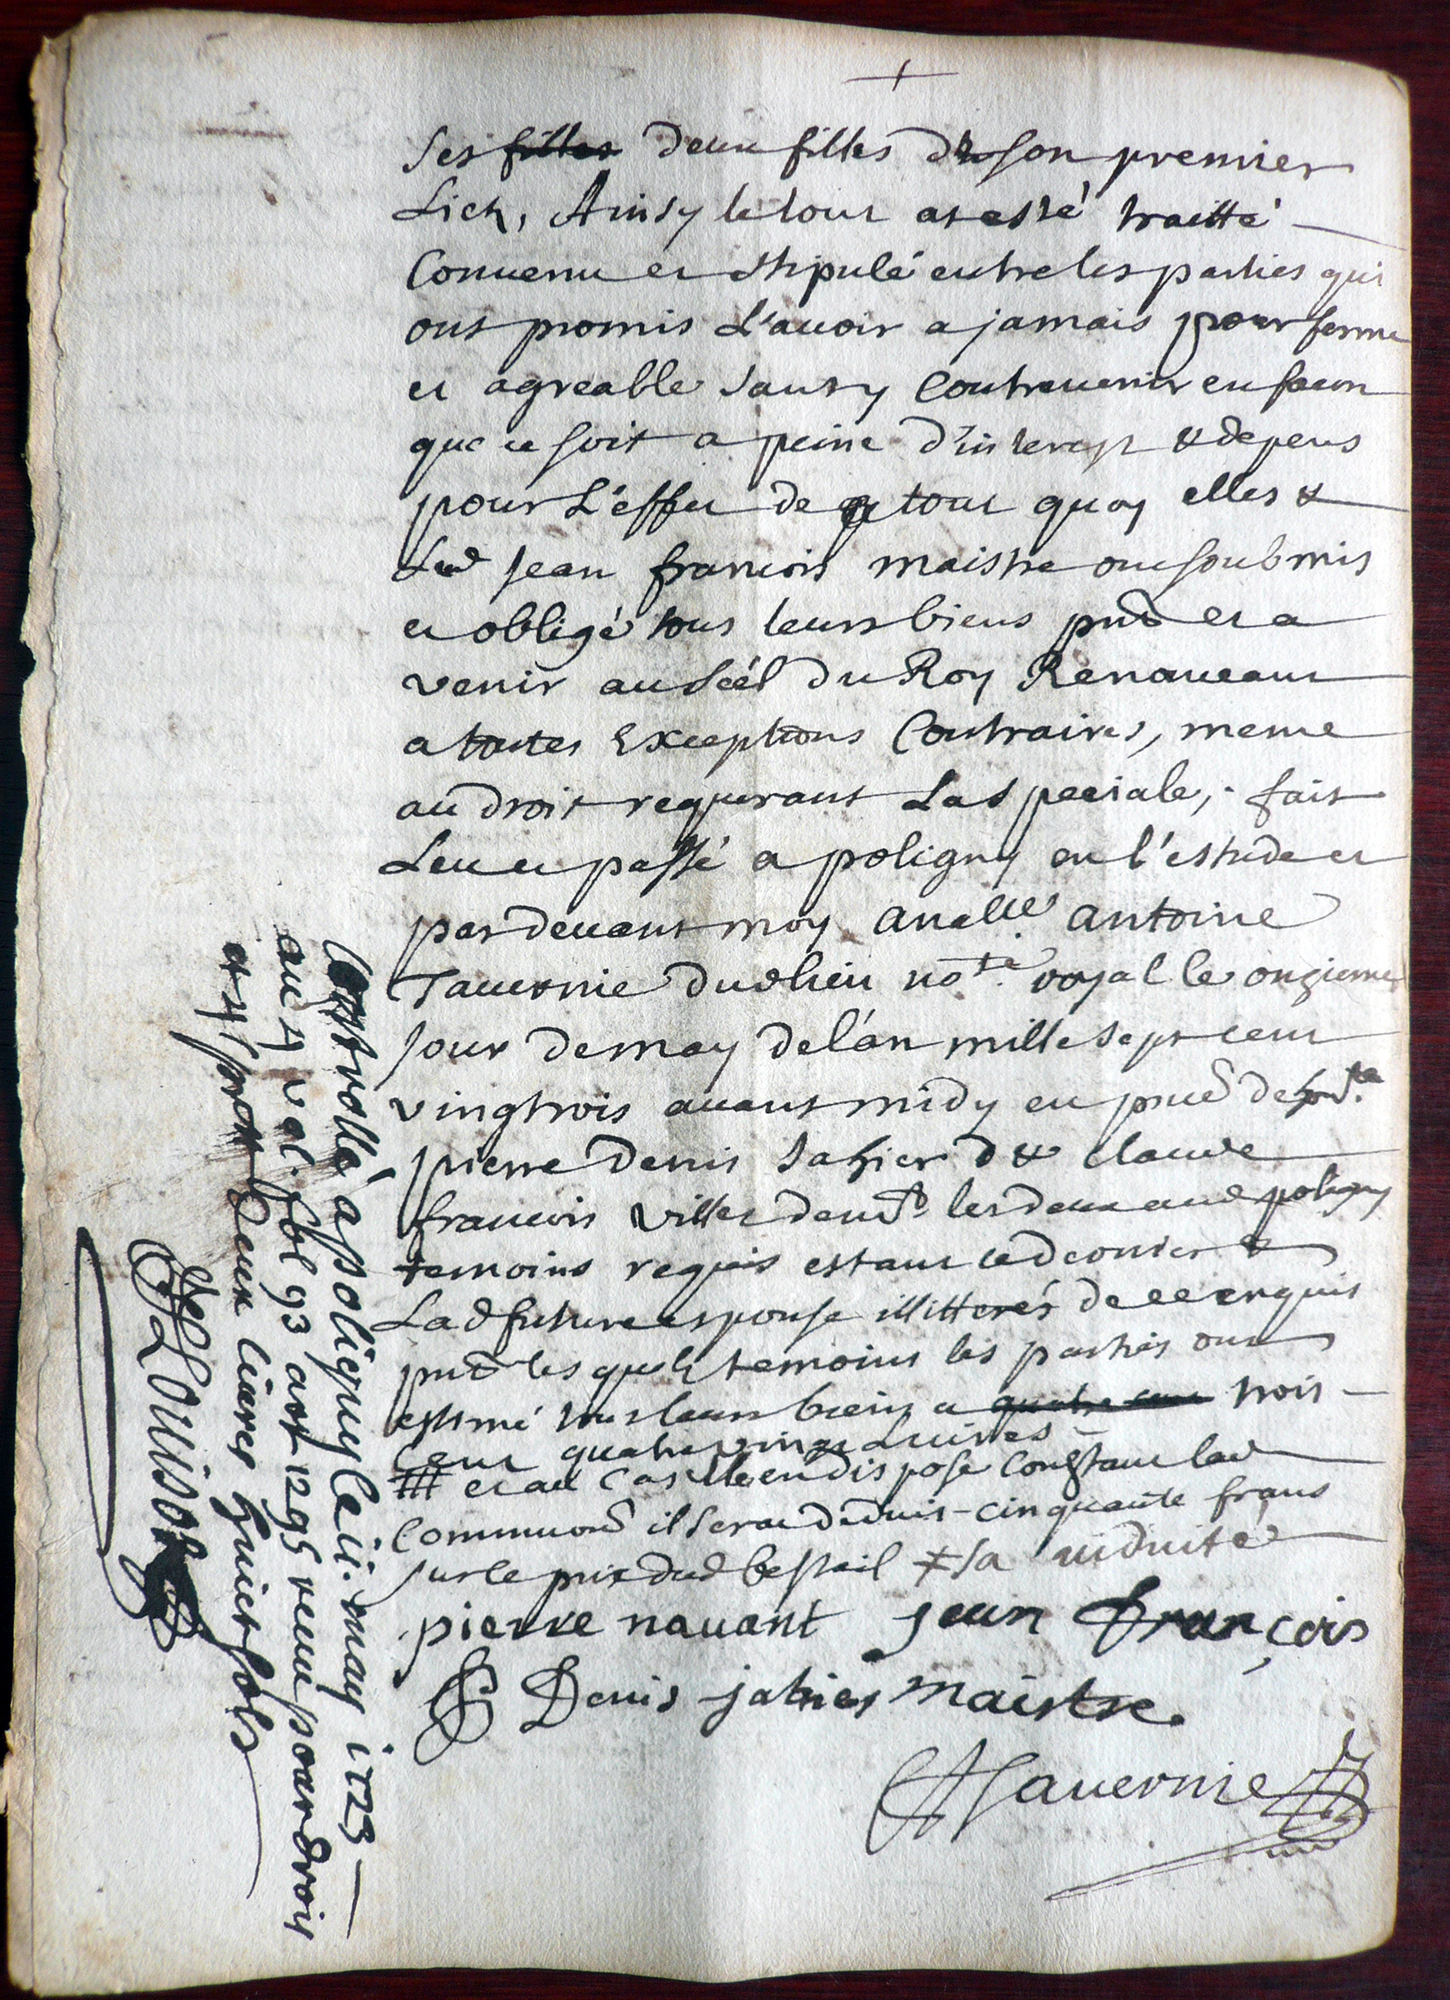 +
ses filles deux filles de son premier
Lict, Ainsy le tout at esté traitté
Convenu et stipulé entre les parties qui
ont promis L'avoir a jamais pour ferme
et agreable sans y Contrevenir en facon
que ce soit a peine d'interest & depens
pour L'effet de tout quoy elles &
Led Jean francois maistre ont soubmis
et obligé tous leurs biens pnts et a
venir au scél du Roy Renonceant
a toutes Exceptions Contraires, meme
au droit requerant La speciale, fait
Leu et passé a poligny en l'estude et
pardevant moy Anatlle Antoine
Tavernie dud lieu notre royal le onzieme
jour de may de l'an mille sept cent
vingtrois avant midy en pnce de
pierre Denis Jahier d &  Claude
francois Villet demts les deux aud poligny
temoins requis estant ced dernier &
Lad future espouse illitterés de ce enquis
pnts lesquels temoins les parties ont
estimé tous leurs biens a quatre cent trois
Cent quatre vingt Livres
# et au Cas  en dispose Constant lad
Communon il serat deduit cinquante frans
sur le prix dud bestail ≠ sa viduité
pierre navant jean françois
P Denis jahier maistre
A Tavernie
Conttrollé a poligny le ii. may 1723
au 4 vol. fol 93 art 1295 receu pour droit
et 4 s pr # deux livres huict sols
LOUISOT